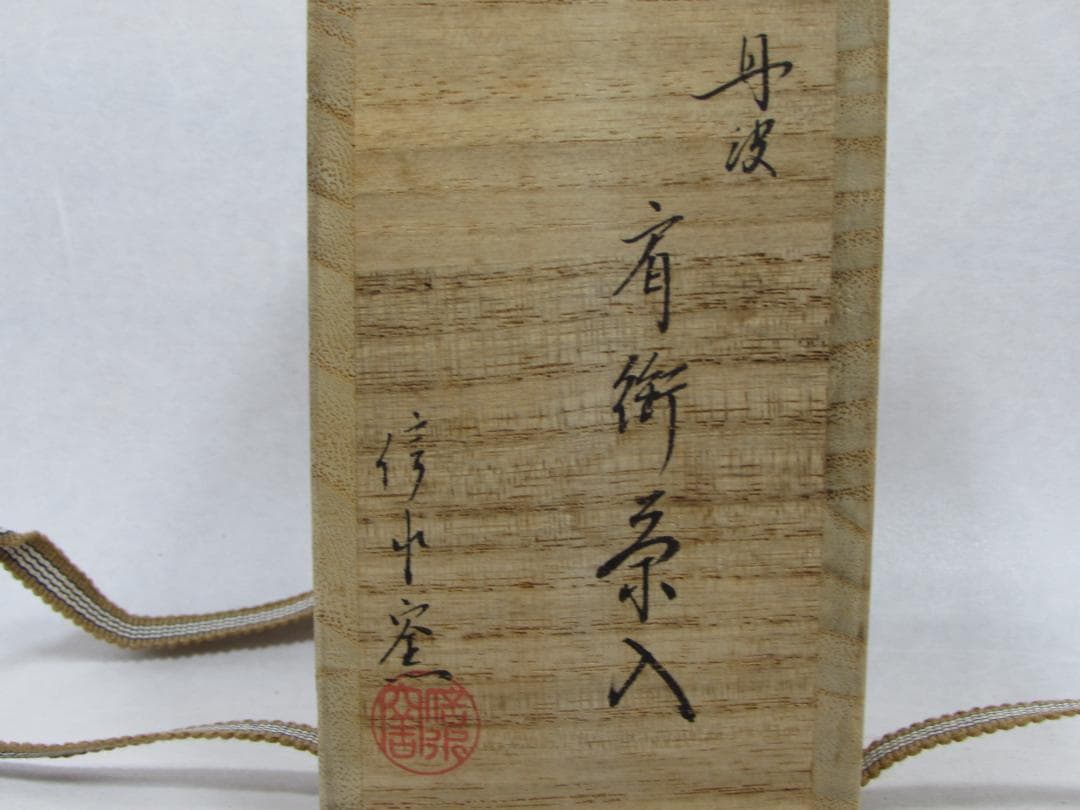 丹波
肩衝茶入
信水窯